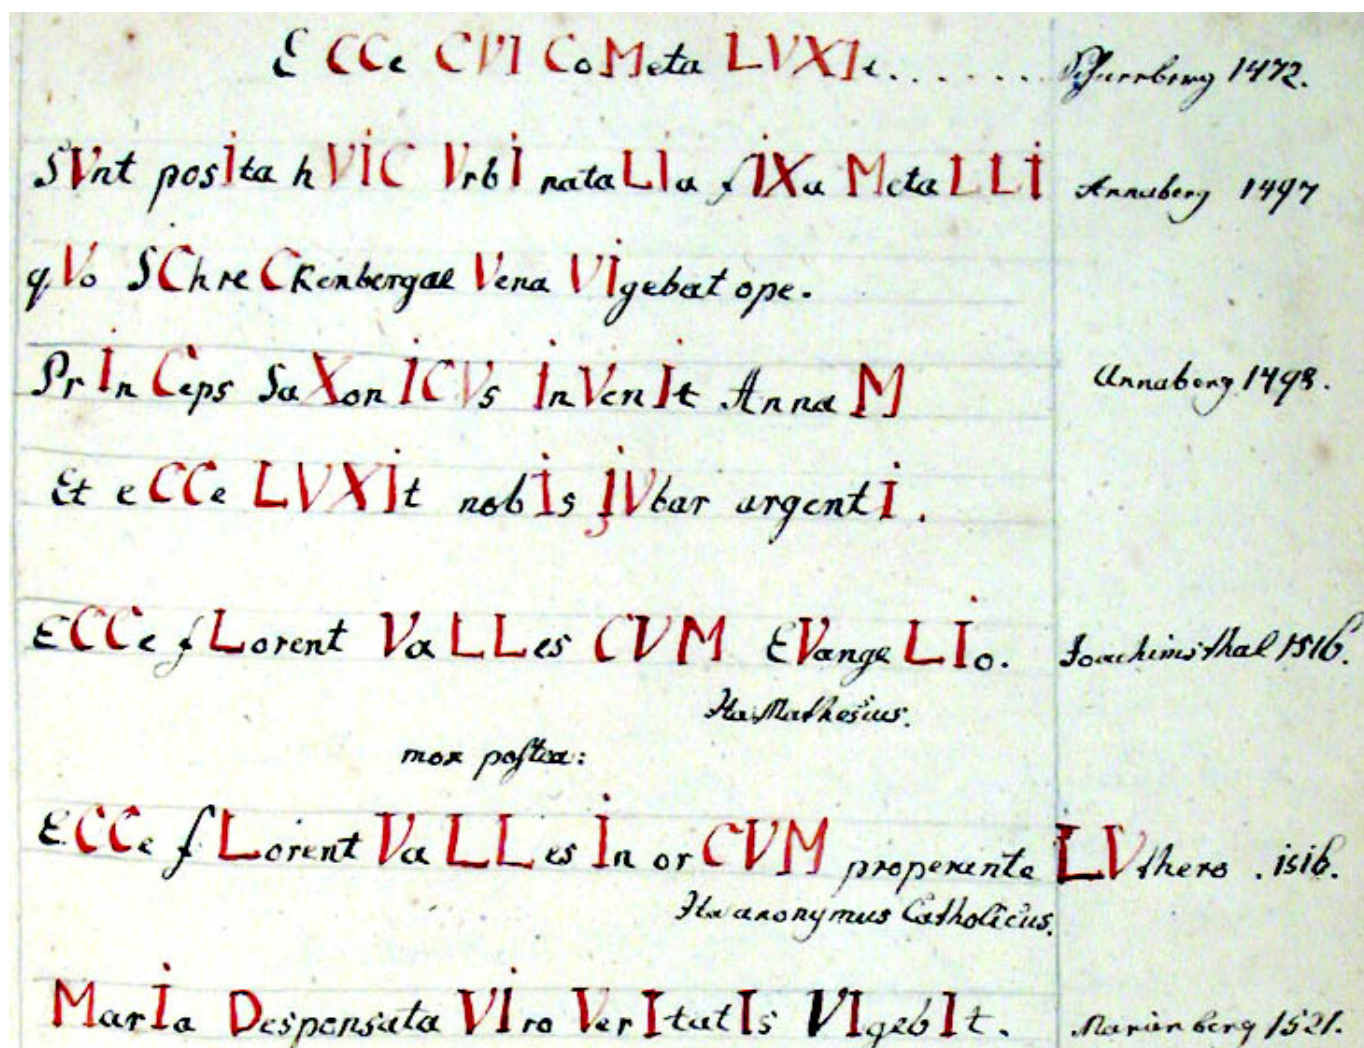 ECCe CVI CoMeta LVXIt....... 1472.
SVnt posIta hVIC VrbI nataLIa fIXa MetaLLI Annaberg 1497
qVo SChreCKenbergae Vena VIgebat ope.
PrInCeps SaXonICVs InVenIt AnnaM Annaberg 1498.
Et eCCe LVXIt nobIs jVbar argentI.
ECCe fLorent VaLLes CVM EVangeLIo. Joachimsthal 1516.
Ita Mathesius.
mox postea:
ECCe fLorent VaLLes In orCVM properante LVthero . 1516.
Ita anonymus Catholicus.
MarIa Desponsata VIro VerItatIs VIgebIt. Marienberg 1521.